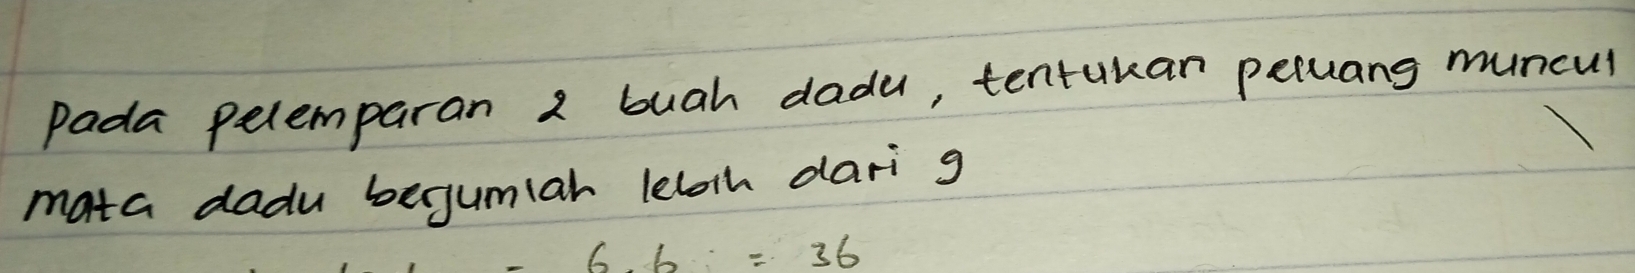 pada pelemparan 2 buah dadu, tentukan peluang muncul
mata dadu berjumlah lebih dari 9
= 6.6 = 36